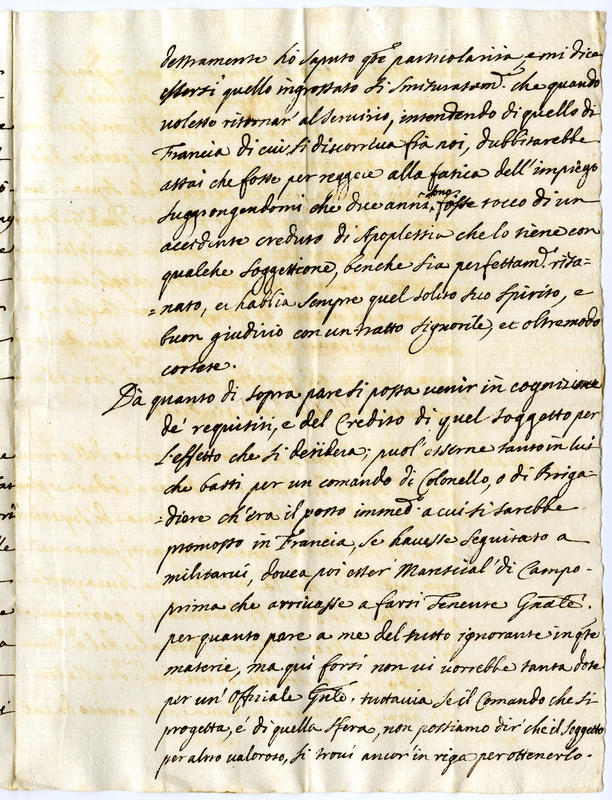 destramente hò saputo qte particolarità, e mi dice
essersi quello ingrossato sì smisuratamte. che quando
volesse ritornar' al Servizio, intendendo di quello di
Francia di cui si discorriva frà noi, dubbitarebbe
assai che fosse per reggere alla fatica dell'impiego
suggiongendomi che due anni sono fosse tocco di un
accidente creduto di Apoplessia che lo tiene con
qualche soggettione, benche sia perfettamte. risa=
=nato, et habbia sempre quel solito suo spirito, e
buon giudizio con un tratto signorile, et oltremodo
cortese.
Dà quanto di sopra pare si possa venir in cognizione
de' requisiti, e del Credito di quel soggetto per
l'effetto che si desidera; puol' esserne tanto in lui
che basti per un comando di Colonello, o di Briga=
=diere ch'era il posto immedo. a cui si sarebbe
promosso in Francia, se havesse seguitato a
militarvi, dovea poi esser' Marescial' di Campo
prima che arrivasse a farsi Tenente Gnãle.
per quanto pare a me del tutto ignorante in qte
materie, ma quì forsi non vi vorrebbe tanta dote
per un' Offiziale Gnãle. tuttavia se il Comando che si
progetta, é di quella sfera, non possiamo dir' che il soggetto
per altro valoroso, si trovi ancor' in riga per ottenerlo.